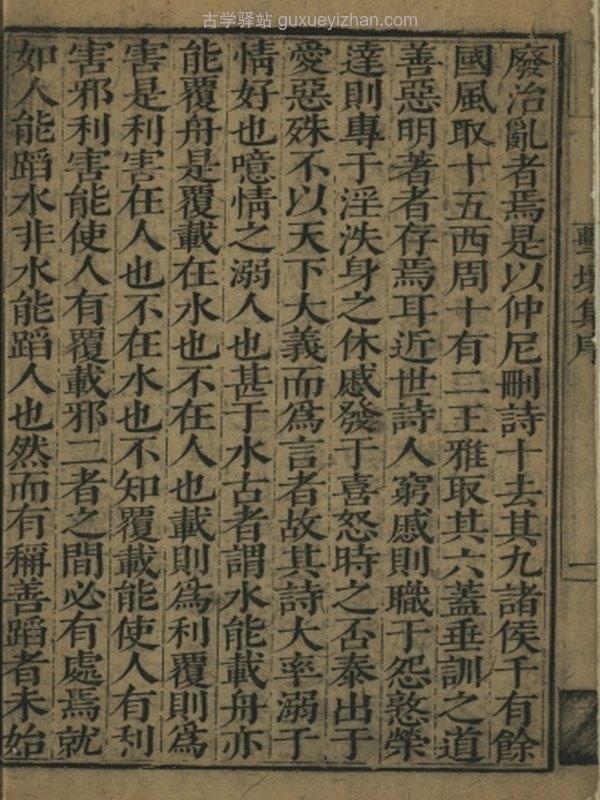 古学驿站 guxueyizhan.com
廢治亂者焉是以仲尼刪詩十去其九諸侯千有餘
國風取十五西周十有二王雅取其六蓋垂訓之道
善惡明著者存焉耳近世詩人窮慼則職于怨憝榮
達則專于淫泆身之休慼發于喜怒時之否泰出于
愛惡殊不以天下大義而爲言者故其詩大率溺于
情好也噫情之溺人也甚于水古者謂水能載舟亦
能覆舟是覆載在水也不在人也載則爲利覆則爲
害是利害在人也不在水也不知覆載能使人有利
害邪利害能使人有覆載邪二者之間必有處焉就
如人能蹈水非水能蹈人也然而有稱善蹈者未始
擊壤集序
一